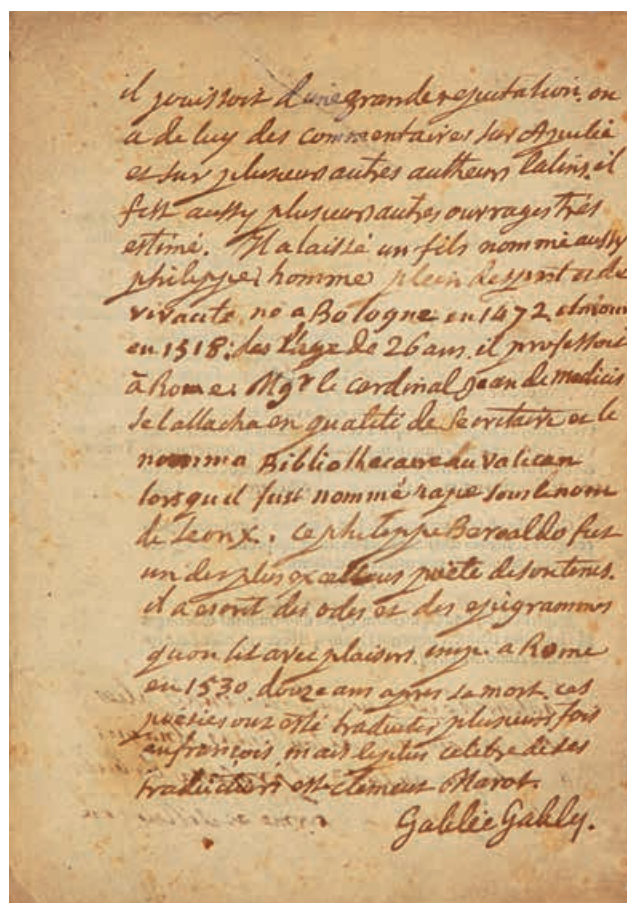 il jouissoit d'une grande reputation. on
a de luy des commentaires sur Apulée
et sur plusieurs autres autheurs latins, il
fist aussy plusieurs autres ouvrages très
estimé. Il a laissé un fils nommé aussy
philippe, homme plein desprit et de
vivacité, né a Bologne en 1472. et mour
en 1518: des l'age de 26 ans, il professoit
à Rome. Mgr le cardinal Jean de medicis
se lattacha en qualité de Secretaire et le
nomma Bibliothecaire du vatican
lorsquil fust nommé pape sous le nom
de Leon X. ce philippe Beroaldo fut
un des plus excellens poete de son tems.
il a escrit des odes et des epigrammes
quon lit avec plaisirs. imp. a Rome
en 1530. douze ans apres sa mort. ces
poesies ont esté traduites plusieurs fois
en françois, mais le plus celebre de ses
traductions est Clement Marot.
Galilée Galily.